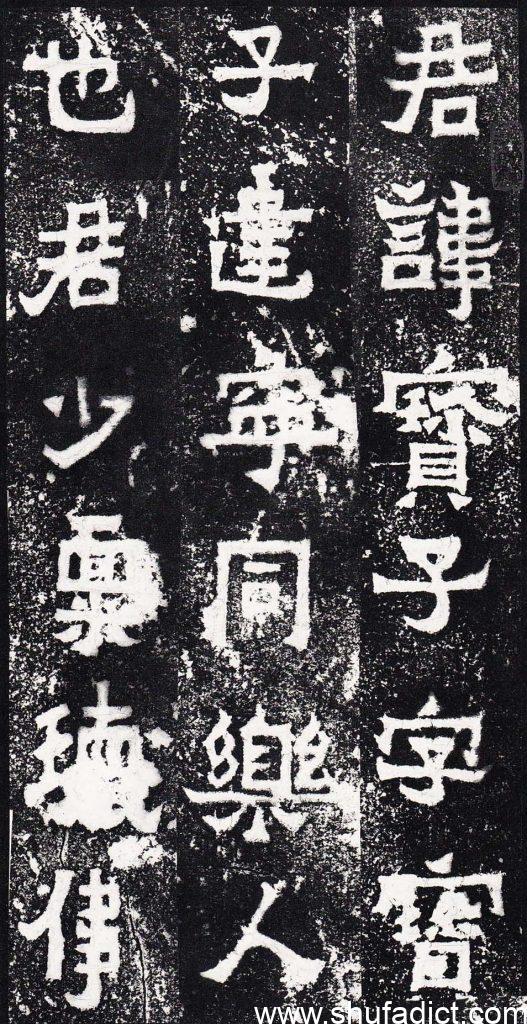 君諱寶子字寶
子建寧同樂人
也君少稟瓌偉
www.shufadict.com